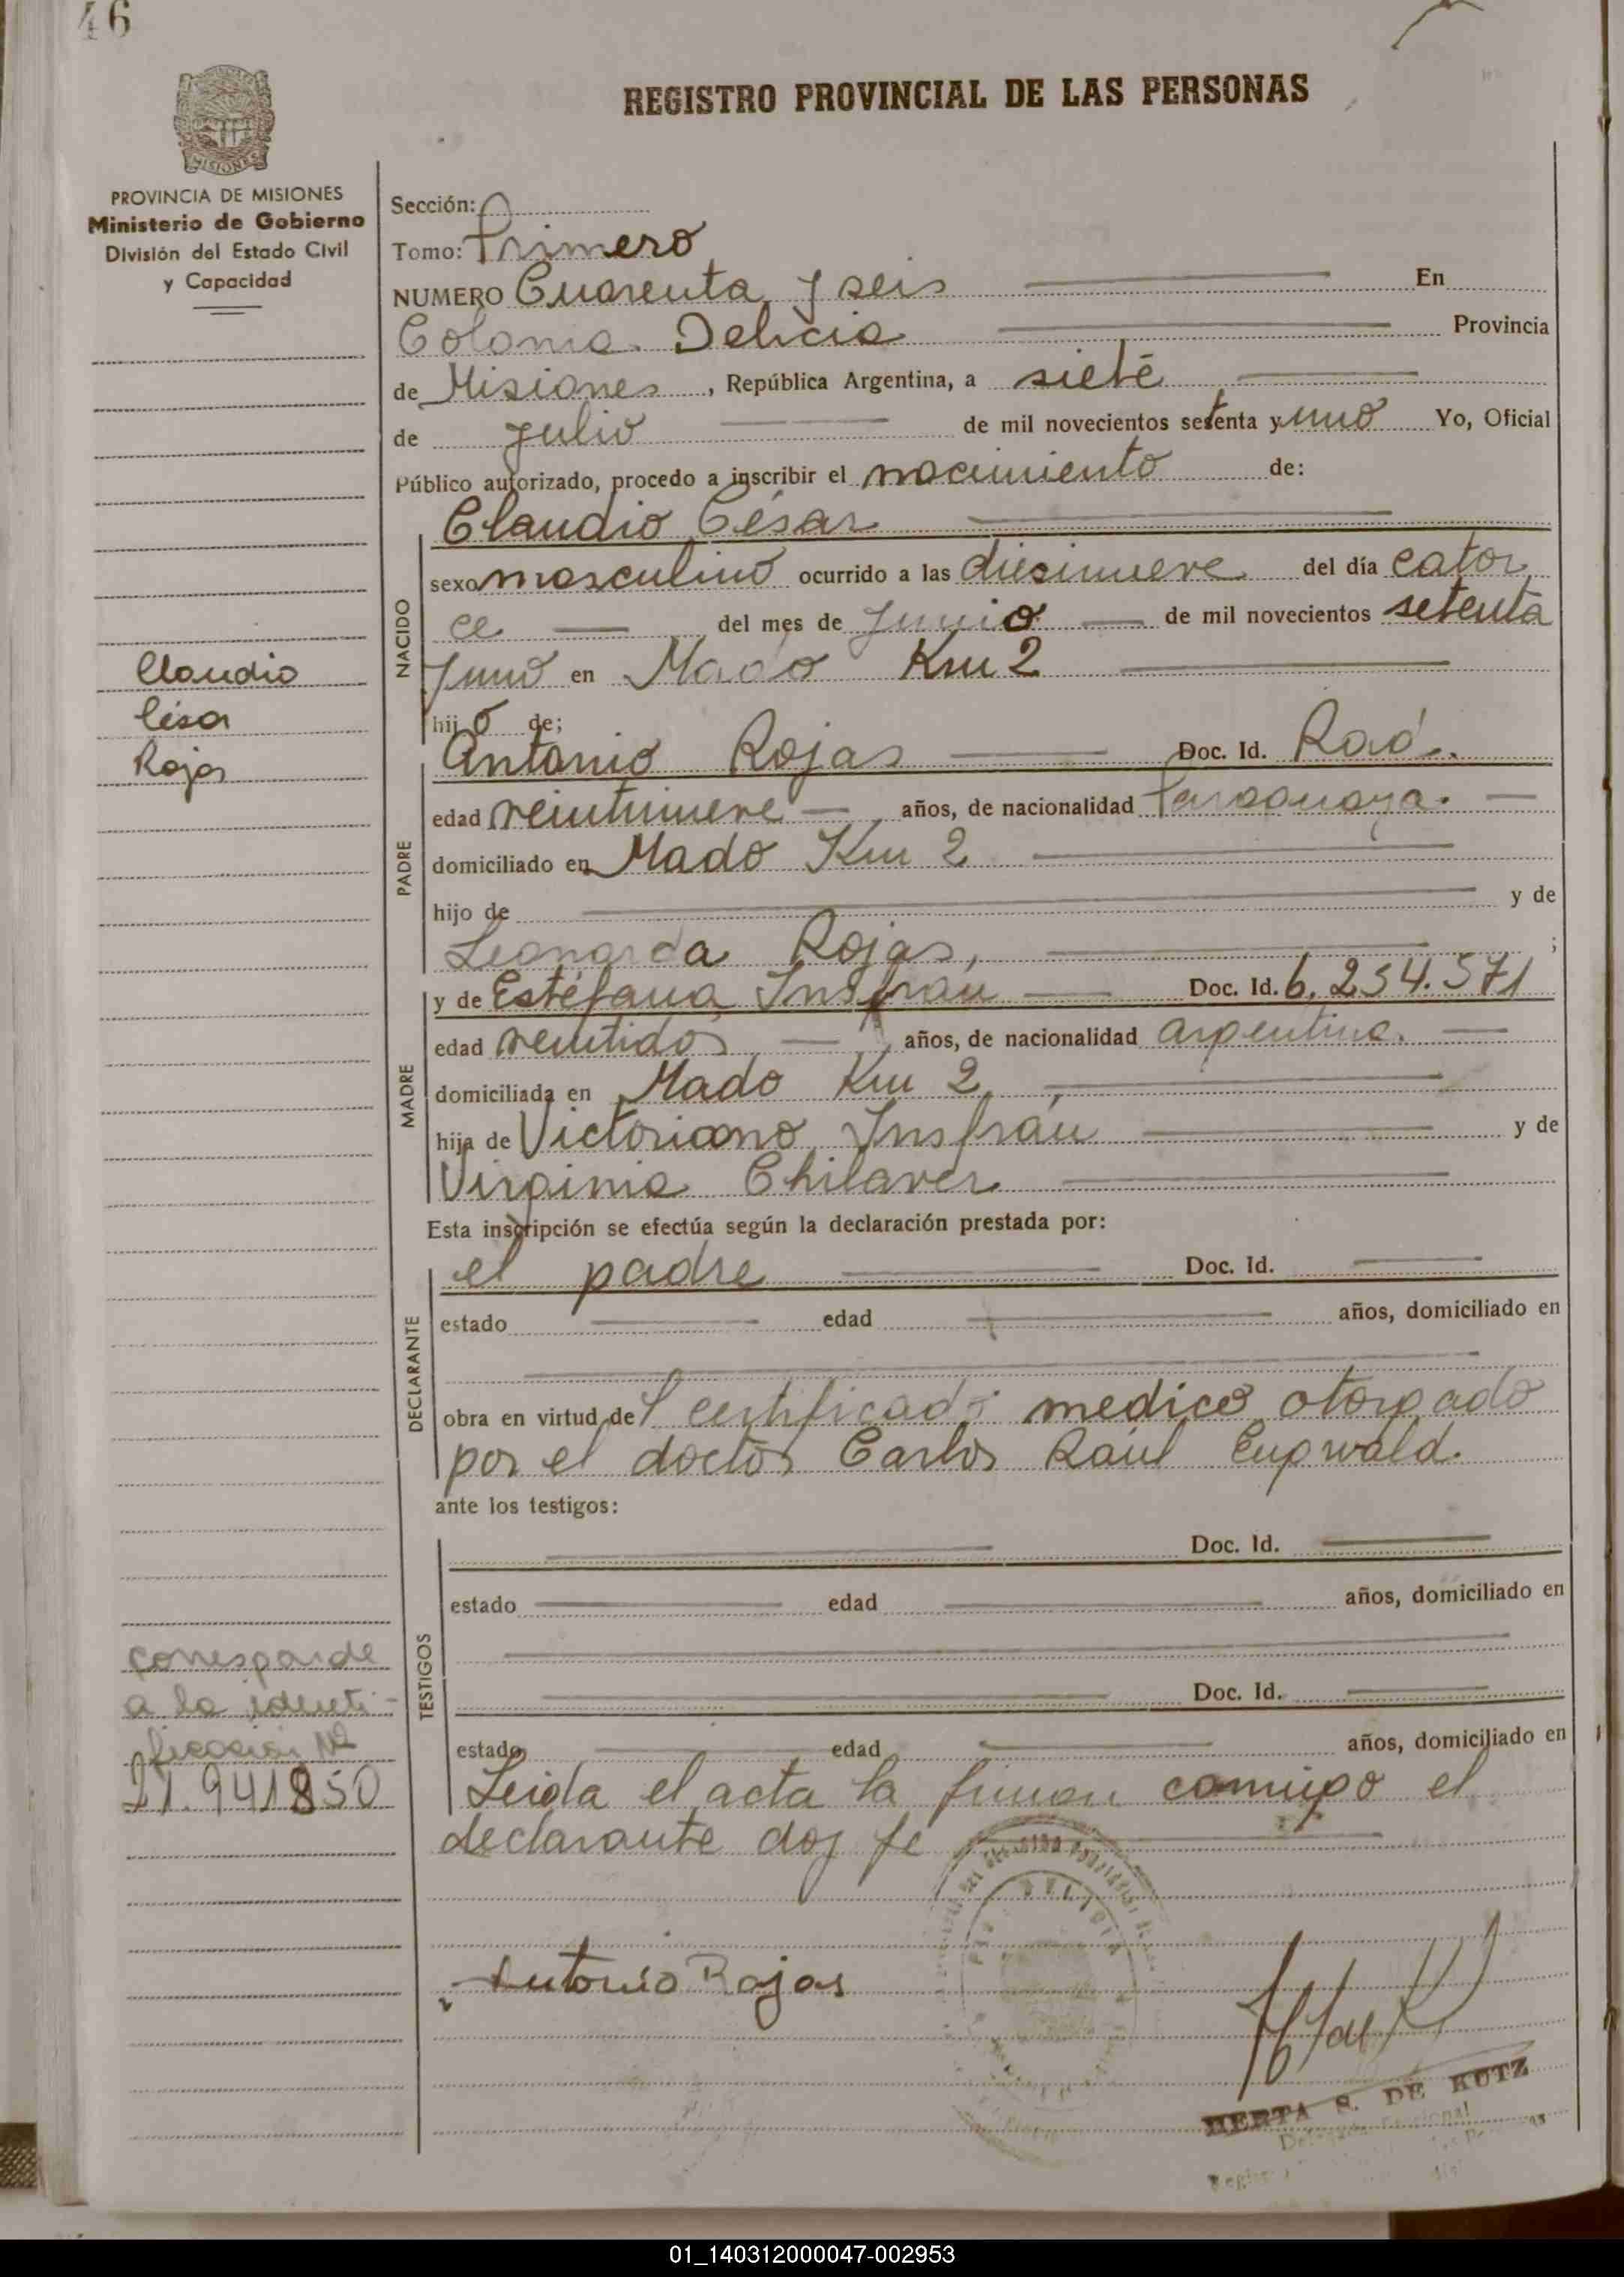 46
REGISTRO PROVINCIAL DE LAS PERSONAS
MISIONES
PROVINCIA DE MISIONES
Ministerio de Gobierno
División del Estado Civil
y Capacidad
Claudio
César
Rojas
corresponde
a la identi-
ficación Nº
21.941850
Sección:
Tomo: Primero
NUMERO Cuarenta y seis En
Colonia Delicia Provincia
de Misiones, República Argentina, a siete
de Julio de mil novecientos setenta y uno Yo, Oficial
Público autorizado, procedo a inscribir el nacimiento de:
Claudio César
NACIDO
sexo masculino ocurrido a las diesinueve del día cator
ce del mes de Junio de mil novecientos setenta
y uno en Mado Km 2
hijo de;
PADRE
Antonio Rojas Doc. Id.
edad veintinueve años, de nacionalidad Paraguaya.
domiciliado en Mado Km 2
hijo de y de
Leonarda Rojas, ;
MADRE
y de Estéfana Insfrán Doc. Id. 6.254.571
edad veintidos años, de nacionalidad argentina.
domiciliada en Mado Km 2,
hija de Victoriano Insfrán y de
Virginia Chilaver
Esta inscripción se efectúa según la declaración prestada por:
DECLARANTE
el padre Doc. Id.
estado edad años, domiciliado en
obra en virtud del certificado medico otorgado
por el doctor Carlos Raúl Eugwald.
ante los testigos:
TESTIGOS
Doc. Id.
estado edad años, domiciliado en
Doc. Id.
estado edad años, domiciliado en
Leida el acta la firman comigo el
declarante doy fe
Antonio Rojas
HERTA S. DE KUTZ
01_140312000047-002953